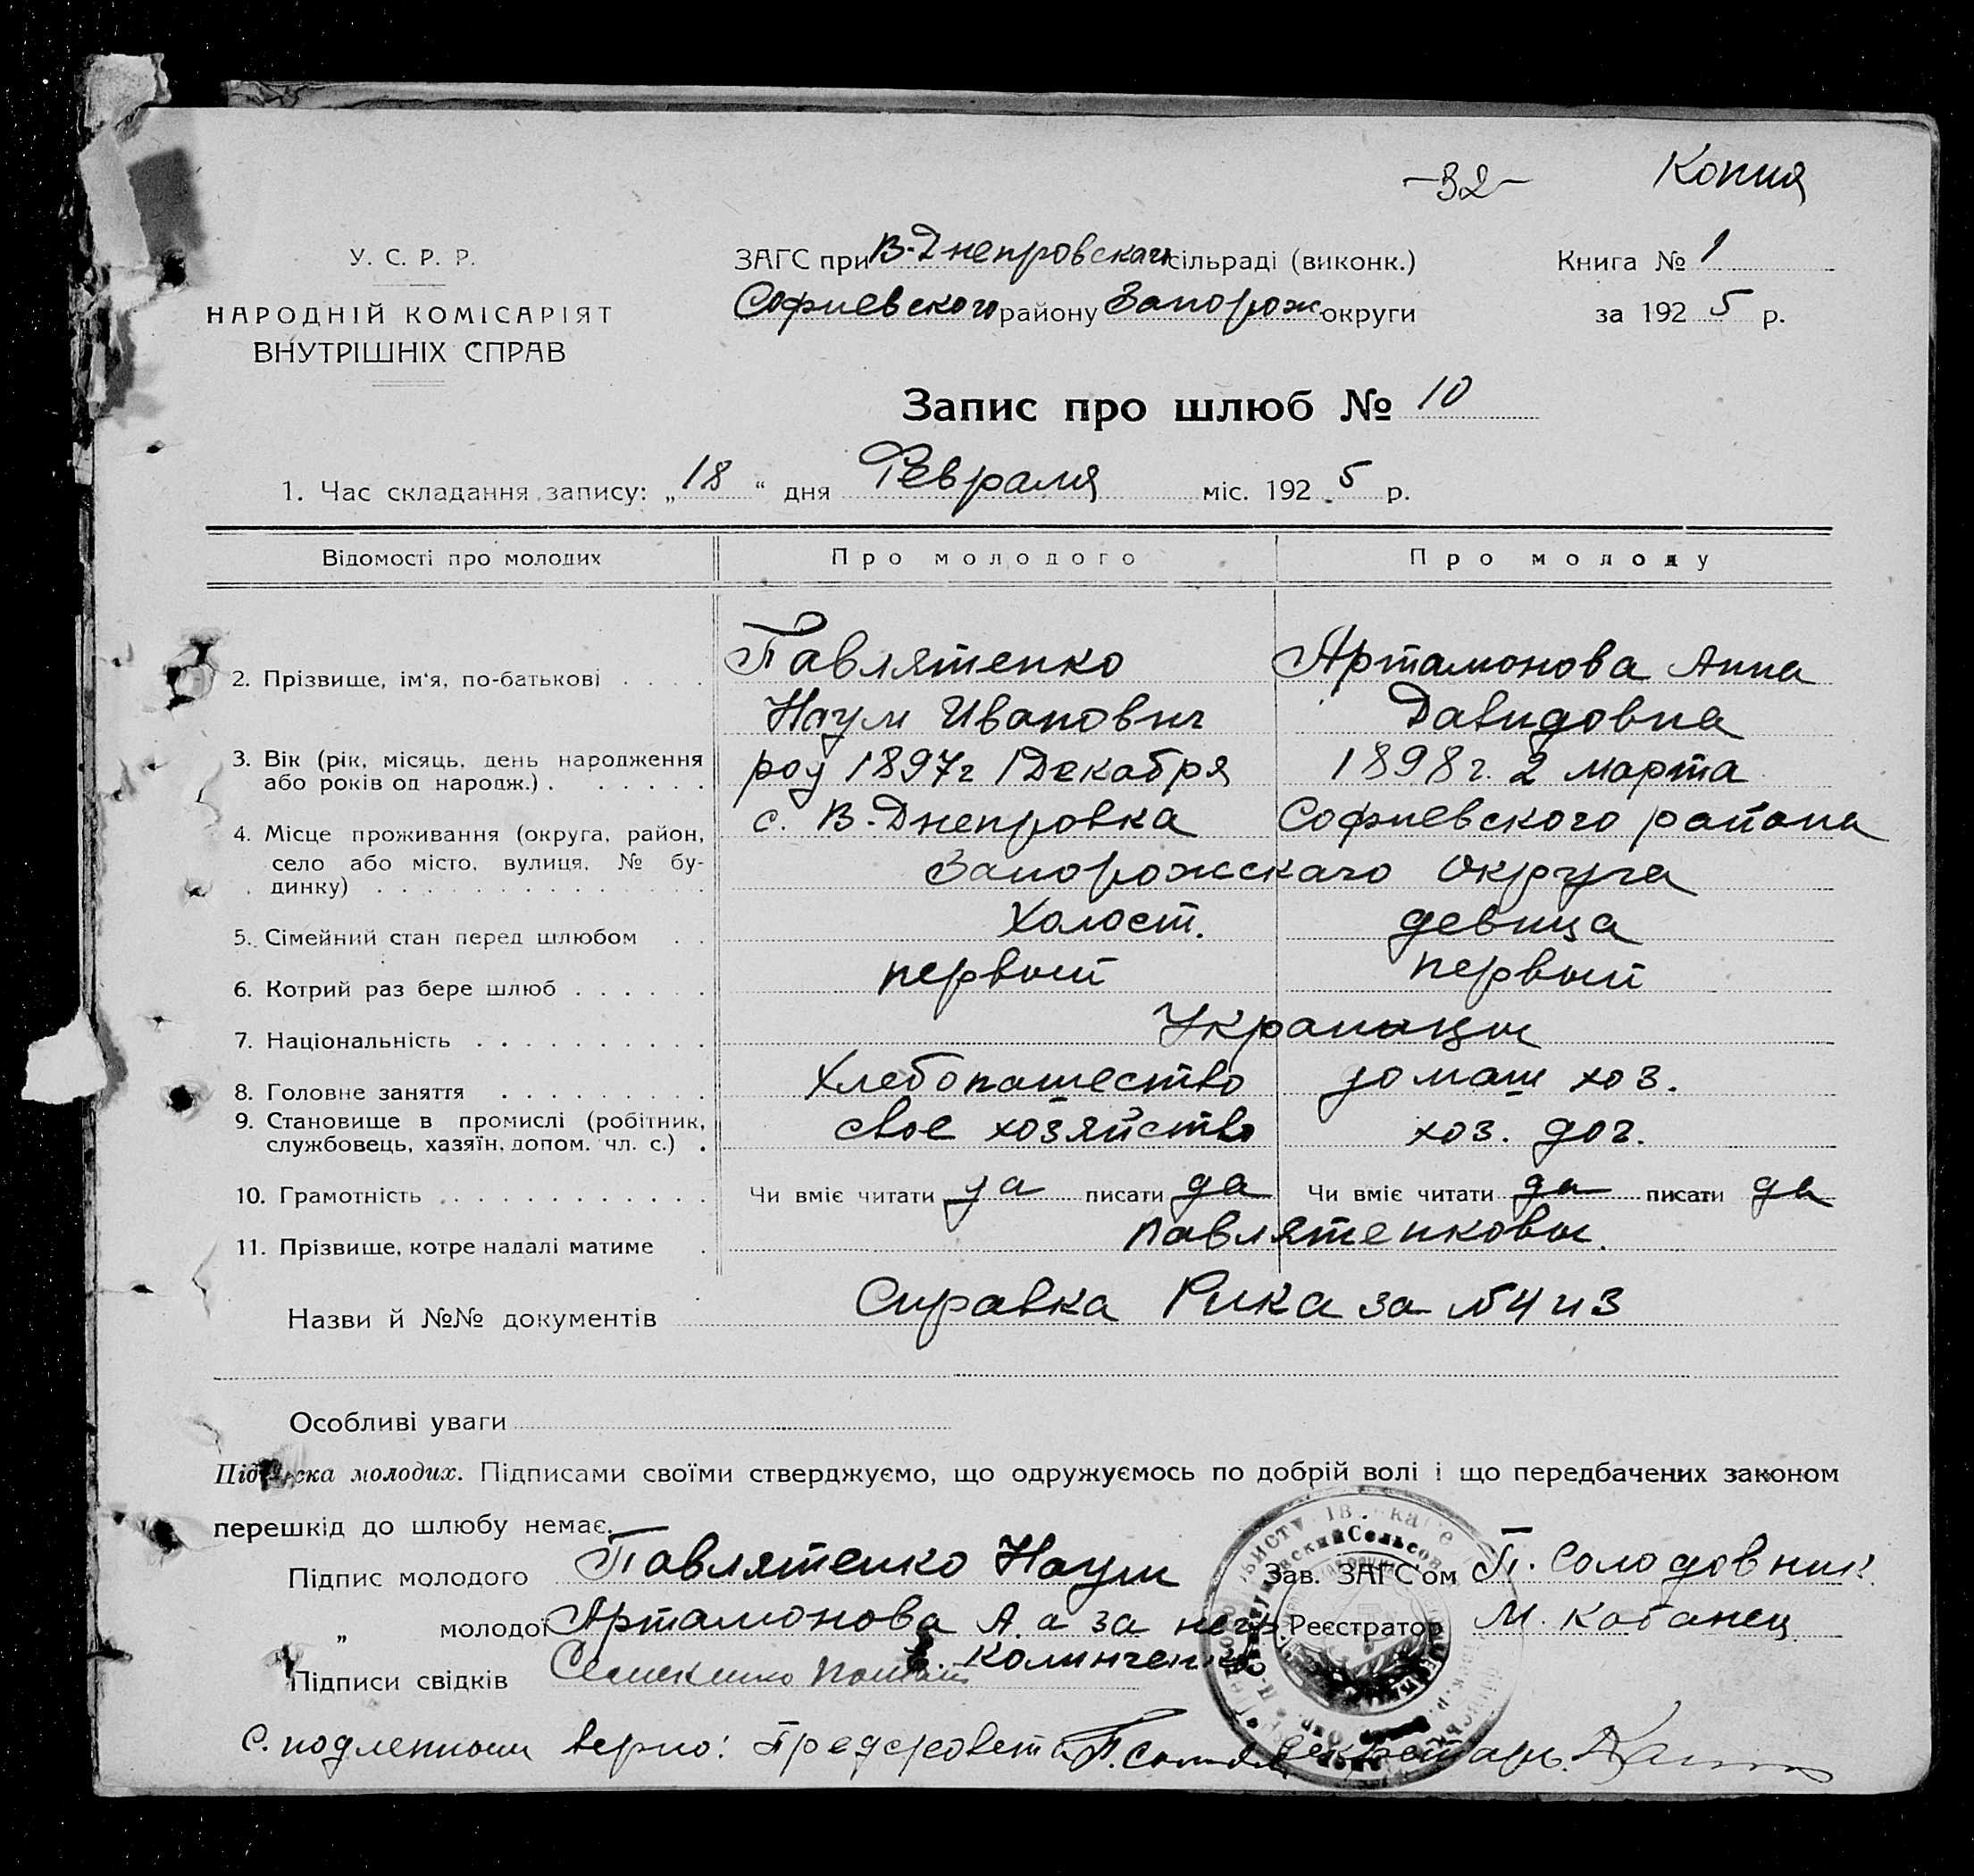 -32- Копия
У. С. Р. Р.
НАРОДНІЙ КОМІСАРІЯТ
ВНУТРІШНІХ СПРАВ
ЗАГС при В-Днепровскай сільраді (виконк.)
Софиевского району Запорож. округи
Книга № 1
за 1925 р.
Запис про шлюб № 10
1. Час складання запису: „18“ дня Февраля міс. 1925 р.
Відомості про молодих Про молодого Про молоду
2. Прізвище, ім'я, по-батькові . . . . Павлятенко Артамонова Анна
Наум Иванович Давидовна
3. Вік (рік, місяць, день народження
або років од народж.) . . . . . . род 1897г 1 Декабря 1898г. 2 марта
4. Місце проживання (округа, район, с. В-Днепровка Софиевского района
село або місто, вулиця, № бу-
динку) Запорожскаго Округа
5. Сімейний стан перед шлюбом . . Холост. девица
6. Котрий раз бере шлюб . . . . . . первый первый
7. Національність . . . . . . . . . . Украинцы
8. Головне заняття . . . . . . . . . Хлебопашество домаш хоз.
9. Становище в промислі (робітник,
службовець, хазяїн, допом. чл. с.) . свое хозяйство хоз. доч.
10. Грамотність . . . . . . . . . . . . Чи вміє читати да писати да Чи вміє читати да писати да
11. Прізвище, котре надалі матиме . Павлятенковы.
Назви й №№ документів Справка Рика за №4 и 3
Особливі уваги
Підписка молодих. Підписами своїми стверджуємо, що одружуємось по добрій волі і що передбачених законом
перешкід до шлюбу немає.
Підпис молодого Павлятенко Наум Зав. ЗАГС'ом П. Солодовник
„ молодої Артамонова А. а за негр. Реєстратор М. Кабанец
Калинченко
Підписи свідків
С. подленным верно: Предсовета П. Секретарь